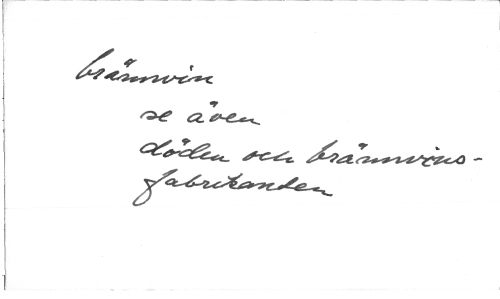 brännvin
se även
döden och brännvins-
fabrikanden